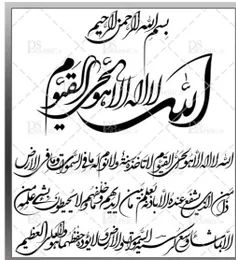 بسم الله الرحمن الرحیم
الله لا اله الا هو الحی القیوم
الله لا اله الا هو الحی القیوم لا تاخذه سنة ولا نوم له ما فی السموات و ما فی الارض
من ذا الذی یشفع عنده الا باذنه یعلم ما بین ایدیهم و ما خلفهم ولا یحیطون بشیء من علمه
الا بما شاء وسع کرسیه السموات والارض ولا یؤده حفظهما وهو العلی العظیم